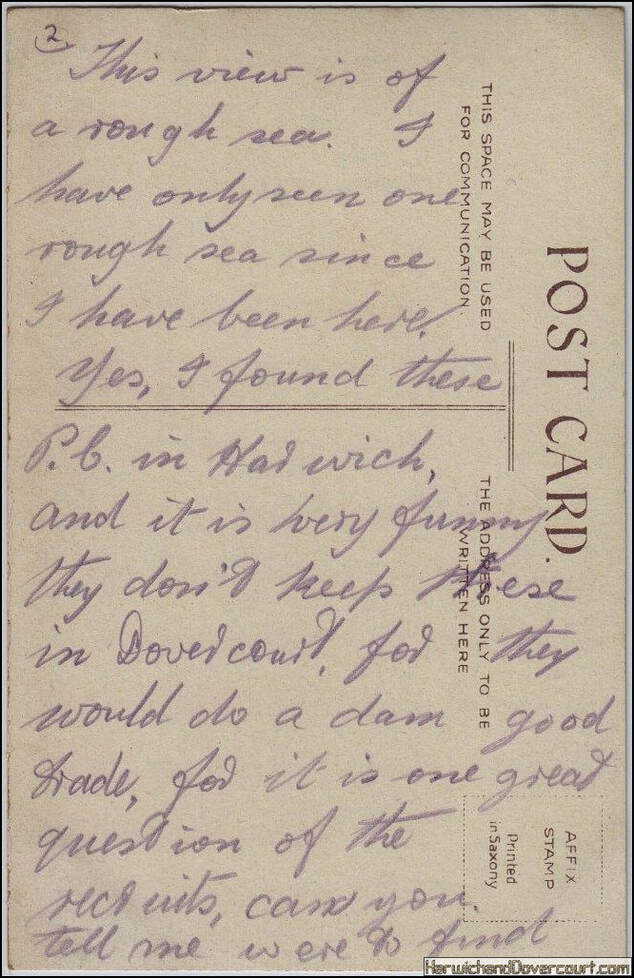 2
This view is of
a rough sea. I
have only seen one
rough sea since
I have been here.
Yes, I found these
P.C. in Harwich,
and it is very funny
they don't keep these
in Dovercourt, for they
would do a dam good
trade, for it is one great
question of the
recruits, can you.
tell me were to find
THIS SPACE MAY BE USED
FOR COMMUNICATION
POST CARD.
THE ADDRESS ONLY TO BE
WRITTEN HERE
AFFIX
STAMP
Printed
in Saxony
HarwichandDovercourt.com